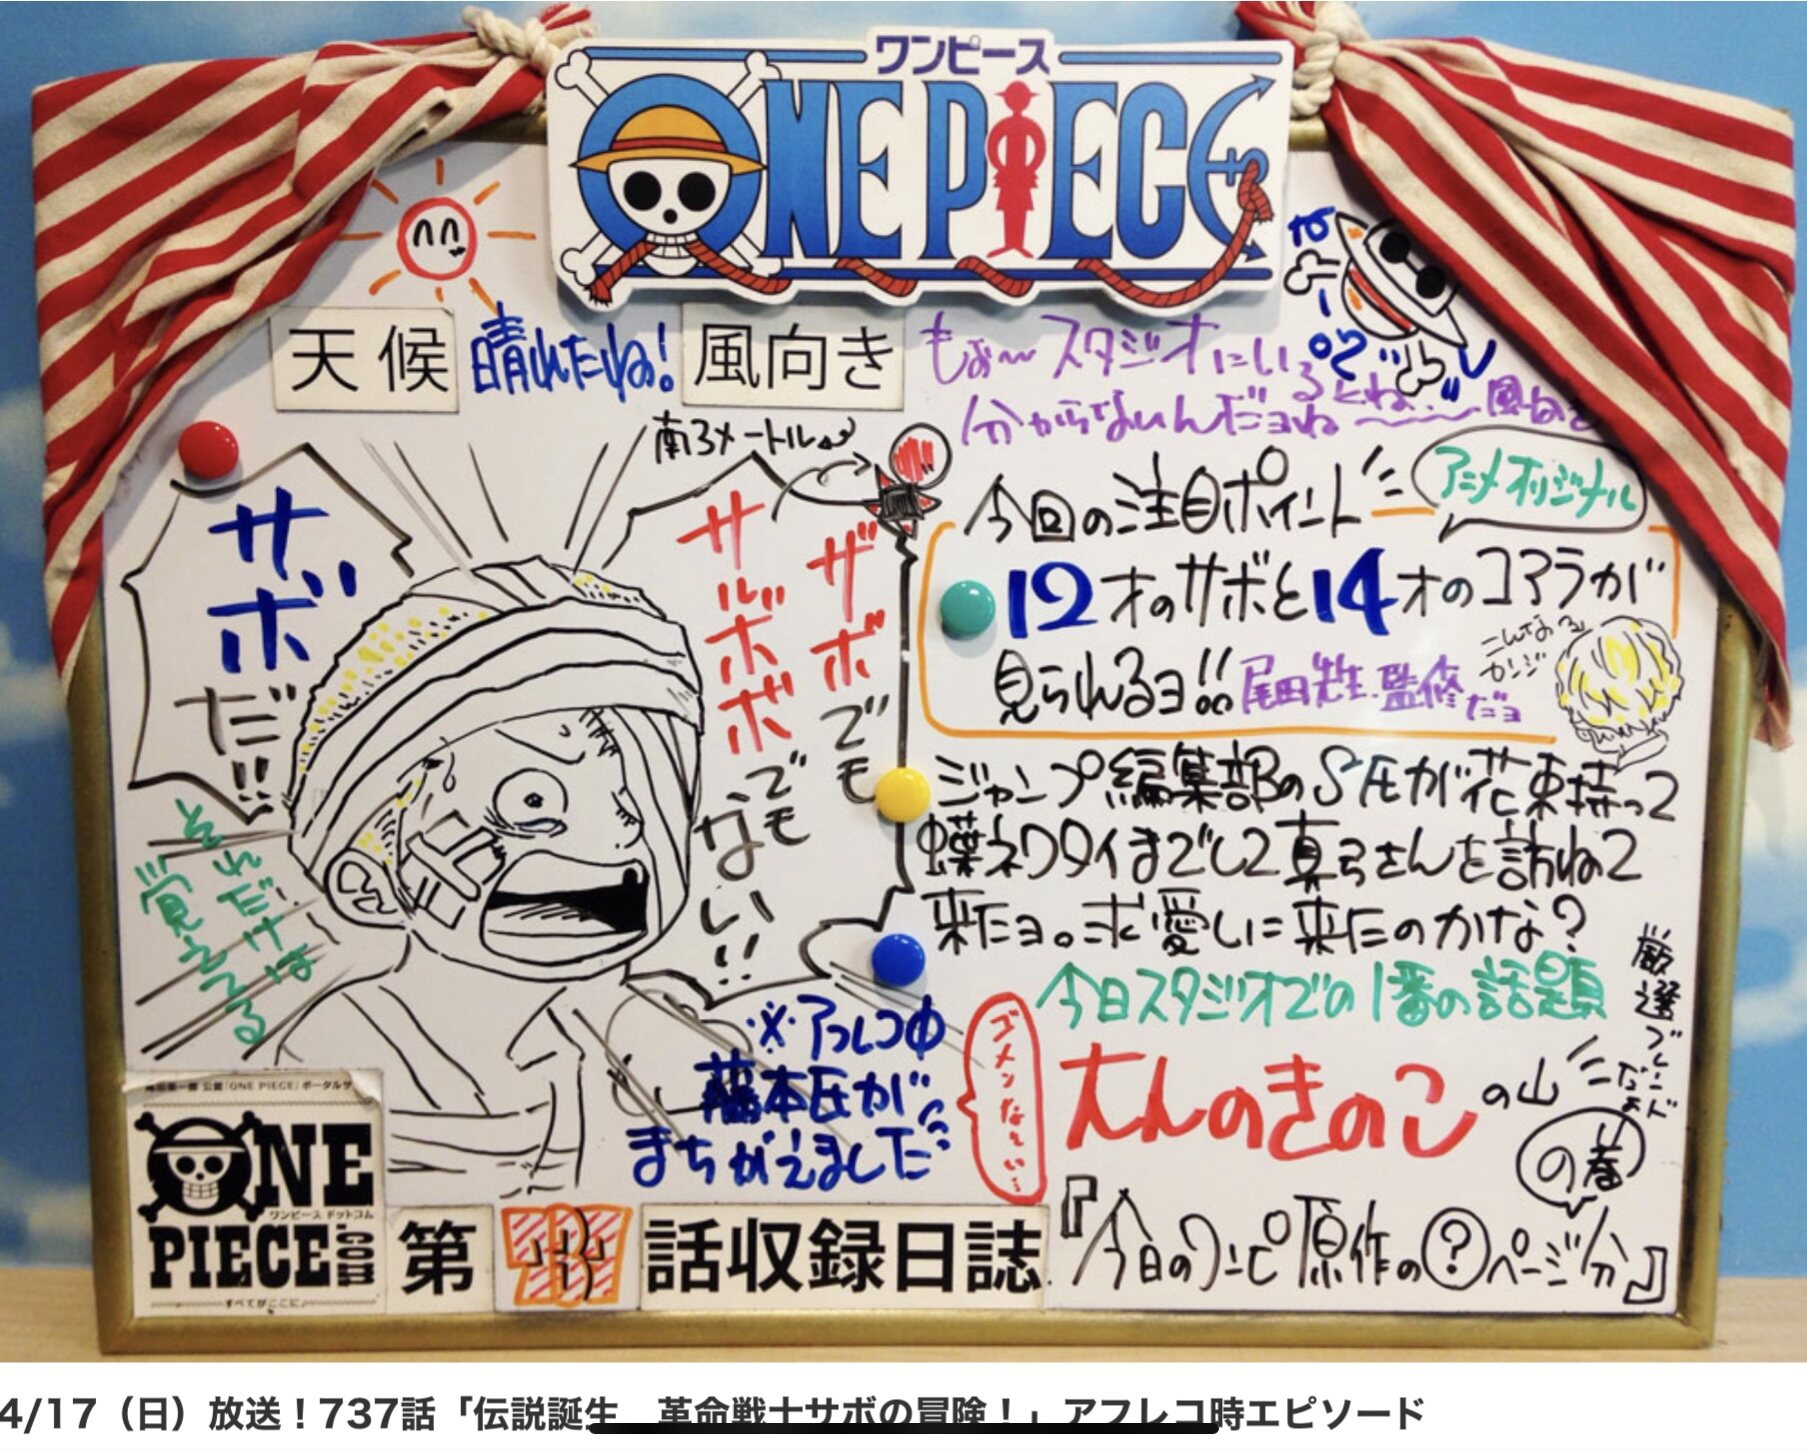 ワンピース
ONE PIECE
天候 晴れたね! 風向き もぉ〜スタジオにいるとね、
分からないんだヨね〜 風向き
南3メートル
サボ
だ!!
サルボボでも
ザボでも
ない!!
それだけは
覚えてる
今回の注目ポイント
アニメオリジナル
12才のサボと14才のコアラが
見られるヨ!!
尾田先生 監修だョ
こんな
カンジ
ジャンプ編集部のS氏が花束持って
蝶ネクタイまでして真弓さんを訪ねて
来たヨ。求愛しに来たのかな?
今日スタジオでの1番の話題
大人のきのこの山
厳選ブレンド
の巻
※アフレコ中
藤本氏が
まちがえました
ゴメンなさい…
尾田栄一郎 公認「ONE PIECE」ポータルサ
ONE
ワンピース ドットコム
PIECE.COM
すべてがここに
第 737 話収録日誌
『今日のワンピ原作の?ページ分』
4/17(日)放送!737話「伝説誕生 革命戦士サボの冒険!」アフレコ時エピソード